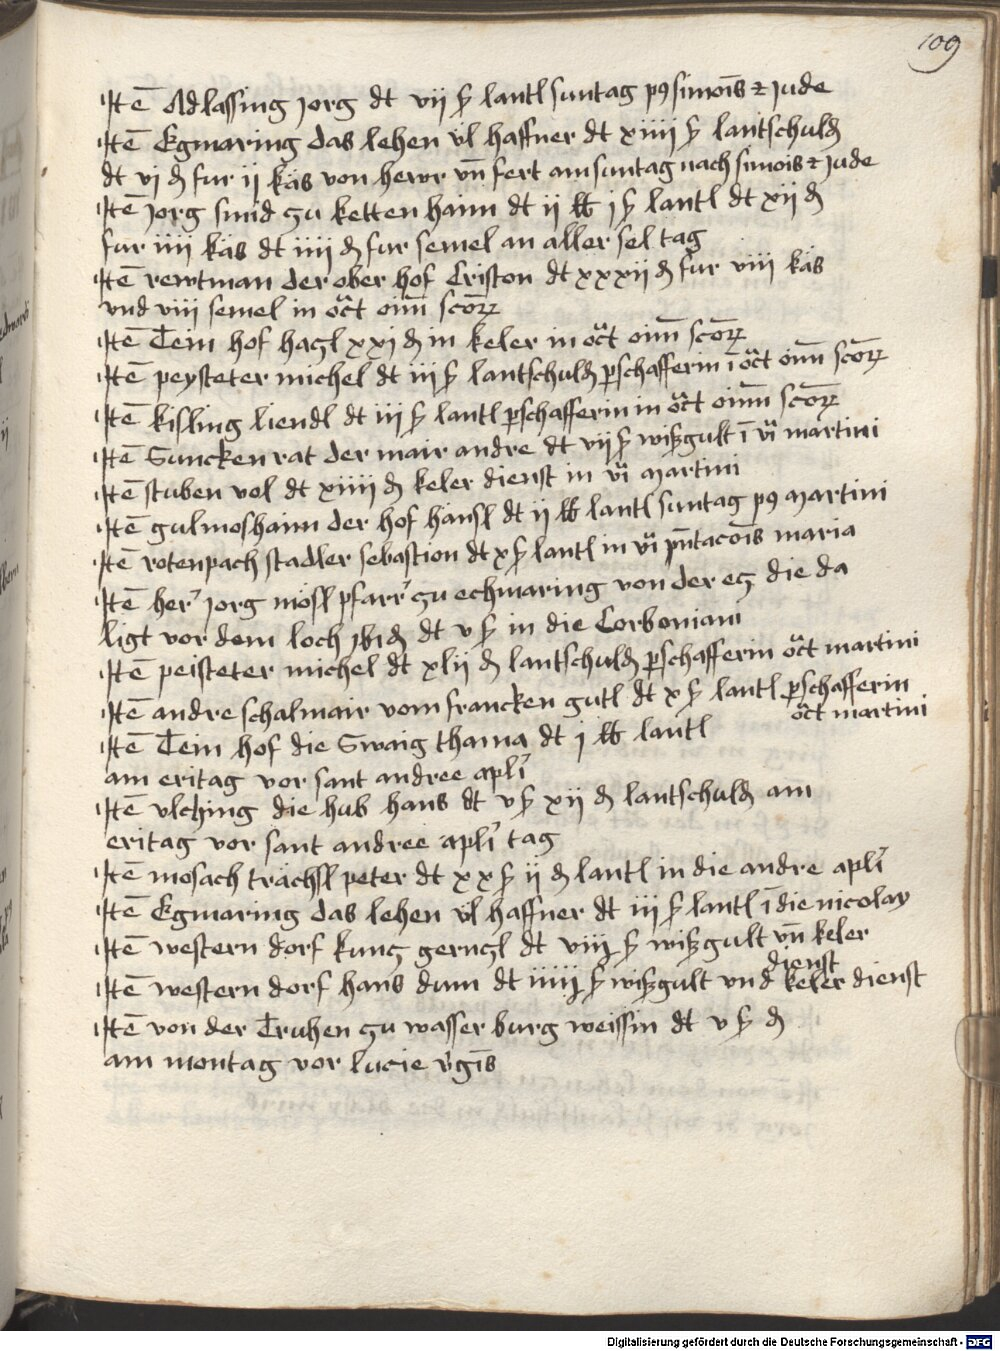 109
Itē Adlassing Jorg dt vij ß lantl suntag p9 simōis ⁊ Jude
Itē Egmaring das lehen vl haffner dt xiiij ß lantschuld
dt vj d fur ij käs von hewr vn̄ fert am suntag nach simois ⁊ Jude
Itē Jorg smid zu kettenhaim dt ij lb j ß lantl dt xij d
fur iiij käs dt iiij d fur semel an aller sel tag
Itē rewtman der ober hof Criston dt xxxij d fur viij käs
vnd viij semel in oct̄ oīm scōrꝝ
Itē Tein hof hagl xxj d in keler in oct̄ oīm scōrꝝ
Itē peysteter michel dt iij ß lantschuld p̱schafferin ī oct̄ oīm scōrꝝ
Itē kisling liendl dt iij ß lantl p̱schafferin in oct̄ oīm scōrꝝ
Itē Suncken rat der mair andre dt vij ß wißgult ī vi͛ martini
Itē stuben vol dt xiiij d keler dienst in vi͛ martini
Itē gulmoshaim der hof hänsl dt ij lb lantl suntag p9 martini
Itē rotenpach stadler sebastion dt x ß lantl in vi͛ pn̄tacōis maria
Itē her͛ Jorg mösl pfarr͛ zu echmaring von der eg die da
ligt vor dem loch dt v ß in die Corboniani
Itē peisteter michel dt xlij d lantschuld p̱schafferin oct̄ martini
Itē andre schalmair vom francken gutl dt x ß lantl p̱schafferin
oct̄ martini
Itē Tein hof die Swaig thama dt j lb lantl
am eritag vor sant andree apli͛
Itē vlching die hub hans dt v ß xij d lantschuld am
eritag vor sant andree apli͛ tag
Itē mosach trächsl peter dt xx ß ij d lantl in die andre apli͛
Itē Egmaring das lehen vl haffner dt iij ß lantl ī die nicolay
Itē western dorf kung gerngl dt viij ß wißgult vn̄ keler
dienst
Itē western dorf hans dum dt iiij ß wißgult vnd keler dienst
Itē von der Truhen zu wasserburg weissin dt v ß d
am montag vor lucie v͛gīs
Digitalisierung gefördert durch die Deutsche Forschungsgemeinschaft - DFG